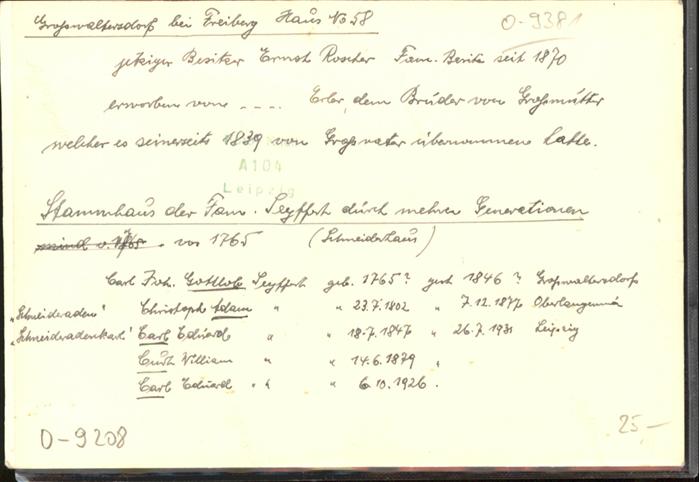 Grosswaltersdorf bei Freiberg Haus No 58
O-9381
jetziger Besitzer Ernst Roscher Fam. Besitz seit 1870
erworben von - - - . Erler, dem Bruder von Grossmutter
welcher es seinerseits 1839 von Grossvater übernommen hatte.
A104
Leipzig
Stammhaus der Fam. Seyffert durch mehre Generationen
vor 1765 (Schneiderhaus)
Carl Joh. Gottlob Seyffert geb. 1765? gest 1846? Grosswaltersdorf
„Schneideradam" Christoph Adam " " 23.7.1802 " 7.12.1877
„Schneideradamkarl" Carl Eduard " " 18.7.1847 " 26.7.1931 Leipzig
Curt William " " 14.6.1879 "
Carl Eduard " " " 6.10.1926.
O-9208
25.-